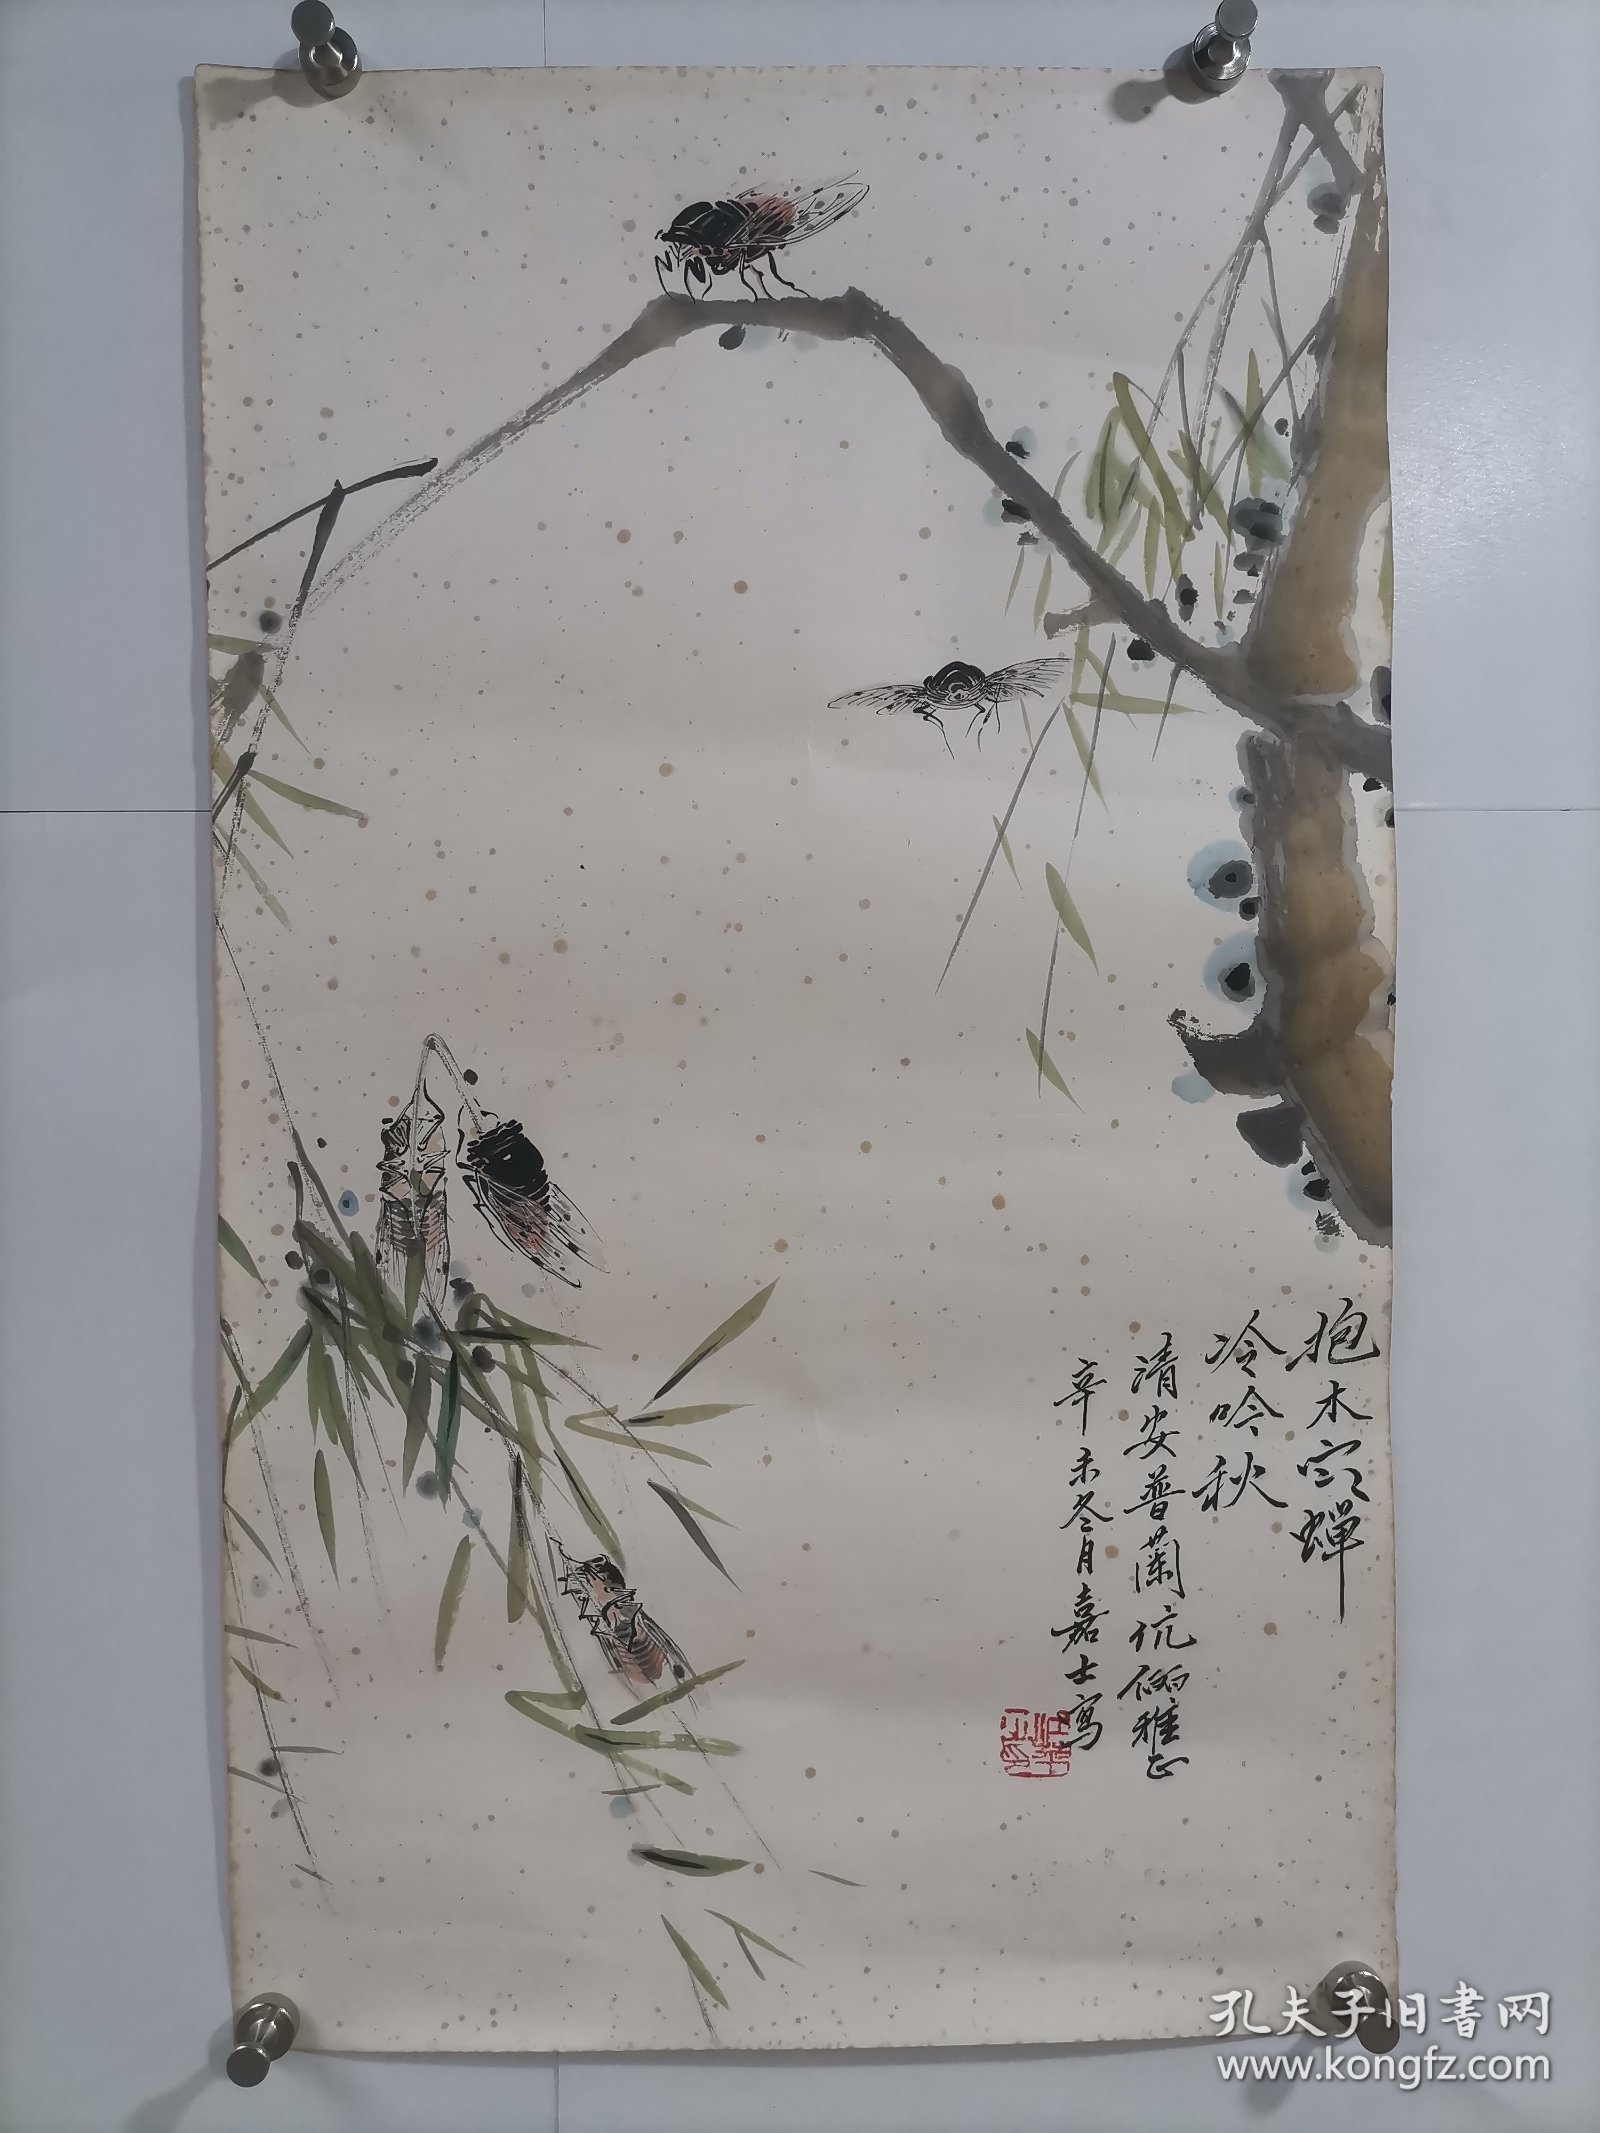 抱木寒蝉
冷吟秋
清安普兰伉俪雅正
辛未冬月嘉士写
孔夫子旧书网
www.kongfz.com